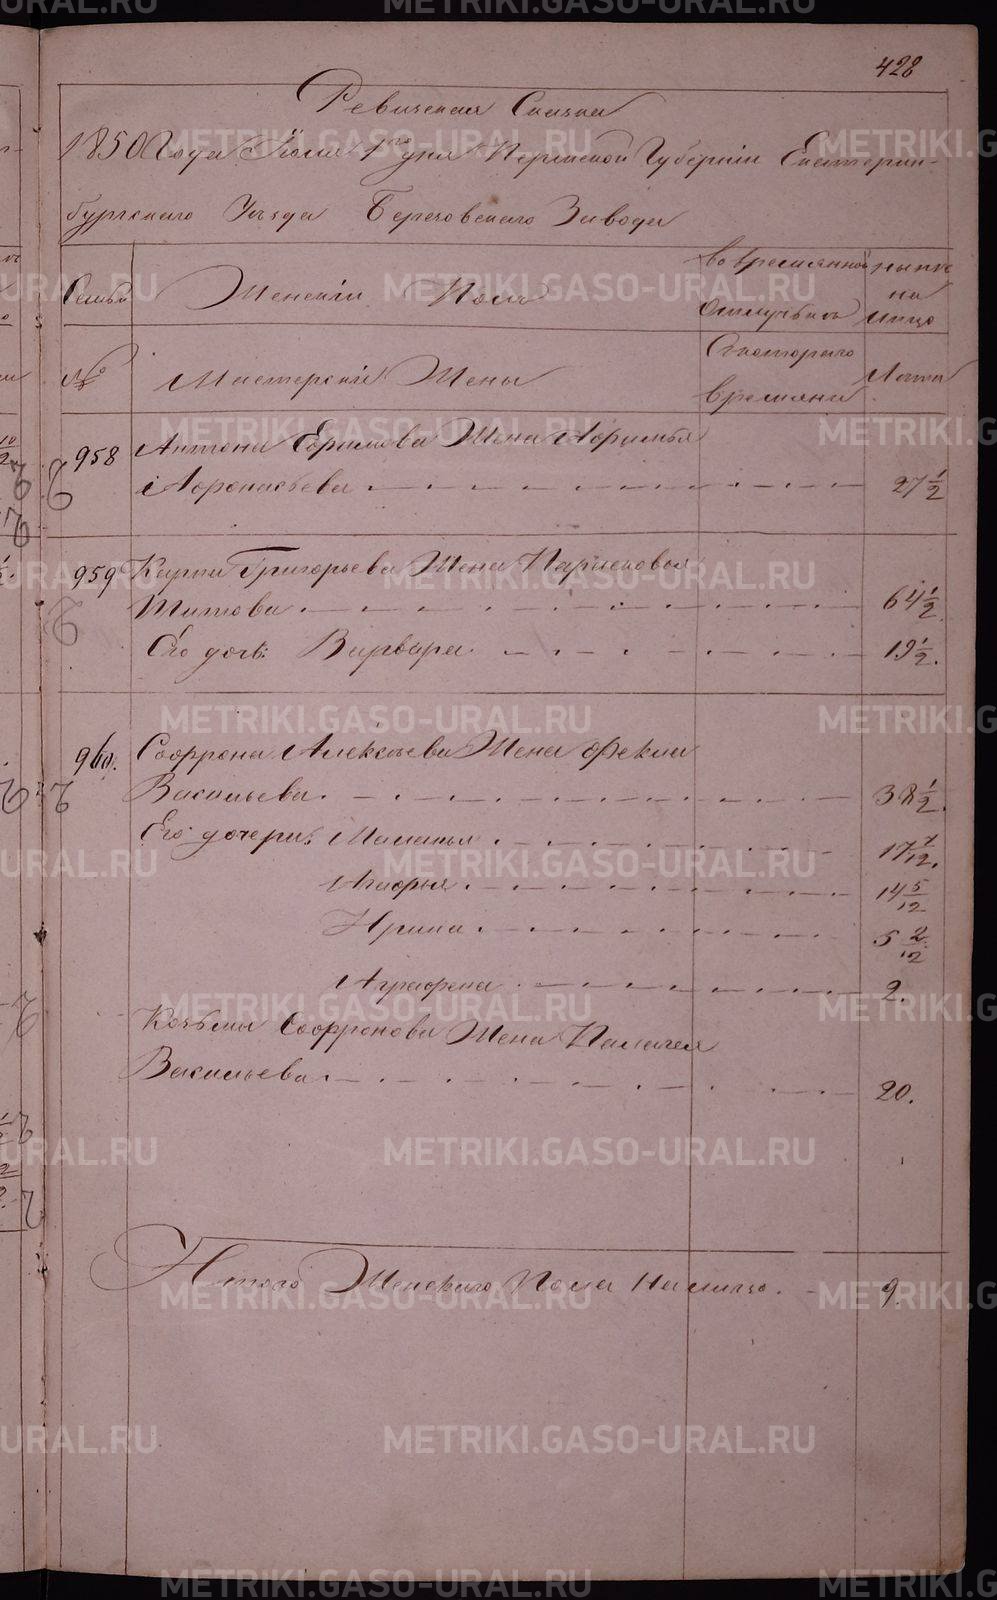 428
Ревизская Сказка
1850 Года Июля 1го дня Пермской Губернии Екатерин-
бургского Уезда Березовского Завода
Семьи
Женский Полъ
Во временной
отлучкъ
ныне
на
лицо
№
Мастерскiе Жены
Съ котораго
времяни
Лета
958
Антона Ефимова Жена Афимья
Афонасьева
27 1/2
959
Карпа Григорьева Жена Парасковья
Титова
64 1/2
Его дочь: Варвара
19 1/2.
960.
Софрона Алексѣева Жена Фекла
Васильева.
38 1/2.
Его дочери: Маланья
17 7/12.
Агафья
14 5/12
Ирина
5 2/12
Аграфена
2.
Козьмы Софронова Жена Палагея
Васильева
20.
Итого Женскаго Пола На лицо.
9.
METRIKI.GASO-URAL.RU